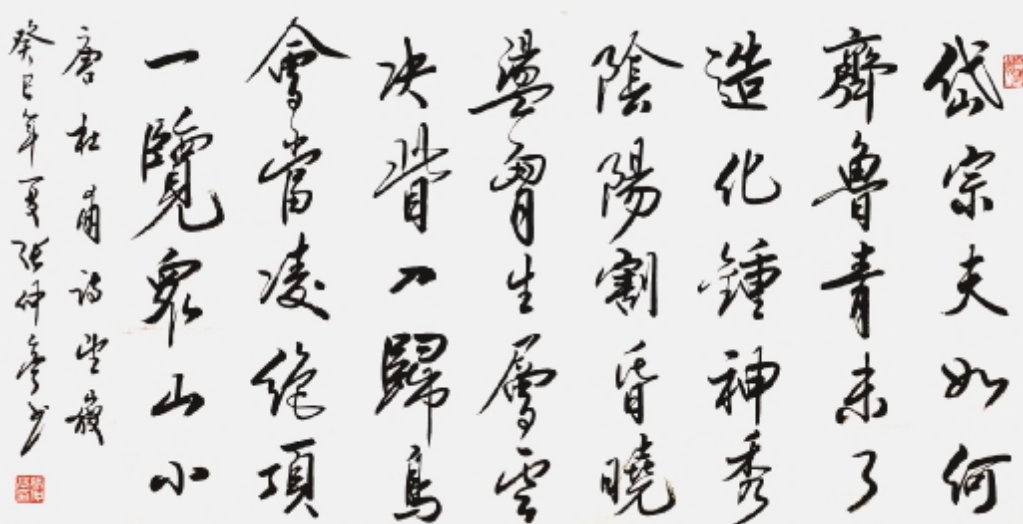 岱宗夫如何
齊魯青未了
造化鍾神秀
陰陽割昏曉
盪胷生層雲
决眥入歸鳥
會當凌絕頂
一覽衆山小
唐杜甫詩望嶽
癸巳年夏張仲亭書